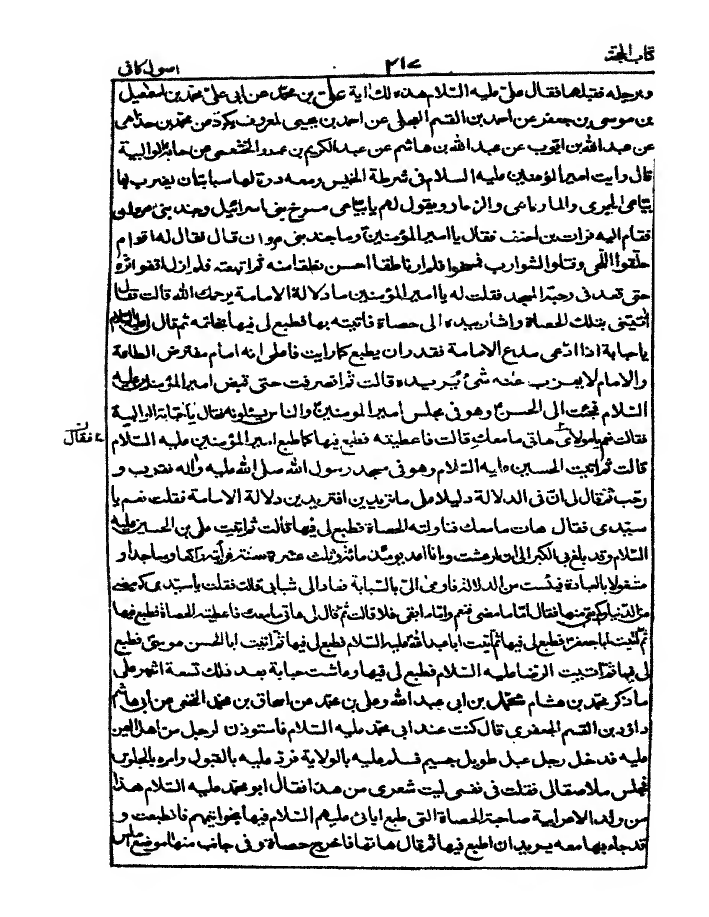 كتاب الحجة
٢١٧
اصول كافى
و برجله فقبلها فقال على عليه السلام هذه لك اية على بن محمد عن ابى على محمد بن اسمعيل
بن موسى بن جعفر عن احمد بن القسم العجلى عن احمد بن يحيى المعروف بكرد عن محمد بن خداهى
عن عبد الله بن ايوب عن عبد الله بن هاشم عن عبد الكريم بن عمرو الخثعمى عن حبابة الوالبية
قال رايت امير المؤمنين عليه السلام فى شرطة الخميس ومعه درة لها سبابتان يضرب بها
بياعى الجرى والمارماهى والزمار ويقول لهم يا بياعى مسوخ بنى اسرائيل وجند بنى مروان
فقام اليه فرات بن احنف فقال يا امير المؤمنين وما جند بنى مروان قال فقال له اقوام
حلقوا اللحى وفتلوا الشوارب فمسخوا فلم ار ناطقا احسن نطقا منه ثم اتبعته فلم ازل اقفو اثره
حتى قعد فى رحبة المسجد فقلت له يا امير المؤمنين ما دلالة الامامة يرحمك الله قالت فقال
ائتينى بتلك الحصاة واشار بيده الى حصاة فاتيته بها فطبع لى فيها بخاتمه ثم قال لى
يا حبابة اذا ادعى مدع الامامة فقدر ان يطبع كما رايت فاعلمى انه امام مفترض الطاعة
والامام لا يعزب عنه شئ يريده قالت ثم انصرفت حتى قبض امير المؤمنين عليه
السلام فجئت الى الحسن ع وهو فى مجلس امير المؤمنين ع والناس يسئلونه فقال يا حبابة الوالبية
فقلت نعم يا مولاى هاتى ما معك قالت فاعطيته فطبع فيها كما طبع امير المؤمنين عليه السلام
فقال
قالت ثم اتيت الحسين عليه السلام وهو فى مسجد رسول الله صلى الله عليه واله فقرب و
رحب ثم قال لى ان فى الدلالة دليلا على ما تريدين افتريدين دلالة الامامة فقلت نعم يا
سيدى فقال هات ما معك فناولته الحصاة فطبع لى فيها قالت ثم اتيت على بن الحسين عليه
السلام وقد بلغ بى الكبر الى ان ارعشت وانا اعد يومئذ مائة وثلث عشرة سنة فرايته راكعا وساجدا و
مشغولا بالعبادة فيئست من الدلالة فاومئ الى بالسبابة فعاد الى شبابى قالت فقلت يا سيدى كم مضى
من الدنيا وكم بقى منها فقال اما ما مضى فنعم واما ما بقى فلا قالت ثم قال لى هاتى ما معك فاعطيته الحصاة فطبع فيها
ثم اتيت ابا جعفر ع فطبع لى فيها ثم اتيت ابا عبد الله عليه السلام فطبع لى فيها ثم اتيت ابا الحسن موسى ع فطبع
لى فيها ثم اتيت الرضا عليه السلام فطبع لى فيها وعاشت حبابة بعد ذلك تسعة اشهر على
ما ذكر محمد بن هشام محمد بن ابى عبد الله وعلى بن محمد عن اسحاق بن محمد النخعى عن ابى هاشم
داؤد بن القسم الجعفرى قال كنت عند ابى محمد عليه السلام فاستوذن لرجل من اهل اليمن
عليه فدخل رجل عبل طويل جسيم فسلم عليه بالولاية فرد عليه بالقبول وامره بالجلوس
فجلس ملاصقا لى فقلت فى نفسى ليت شعرى من هذا فقال ابو محمد عليه السلام هذا
من ولد الاعرابية صاحبة الحصاة التى طبع ابائى عليهم السلام فيها بخواتيمهم فانطبعت و
قد جاء بها معه يريد ان اطبع فيها ثم قال هاتها فاخرج حصاة وفى جانب منها موضع املس